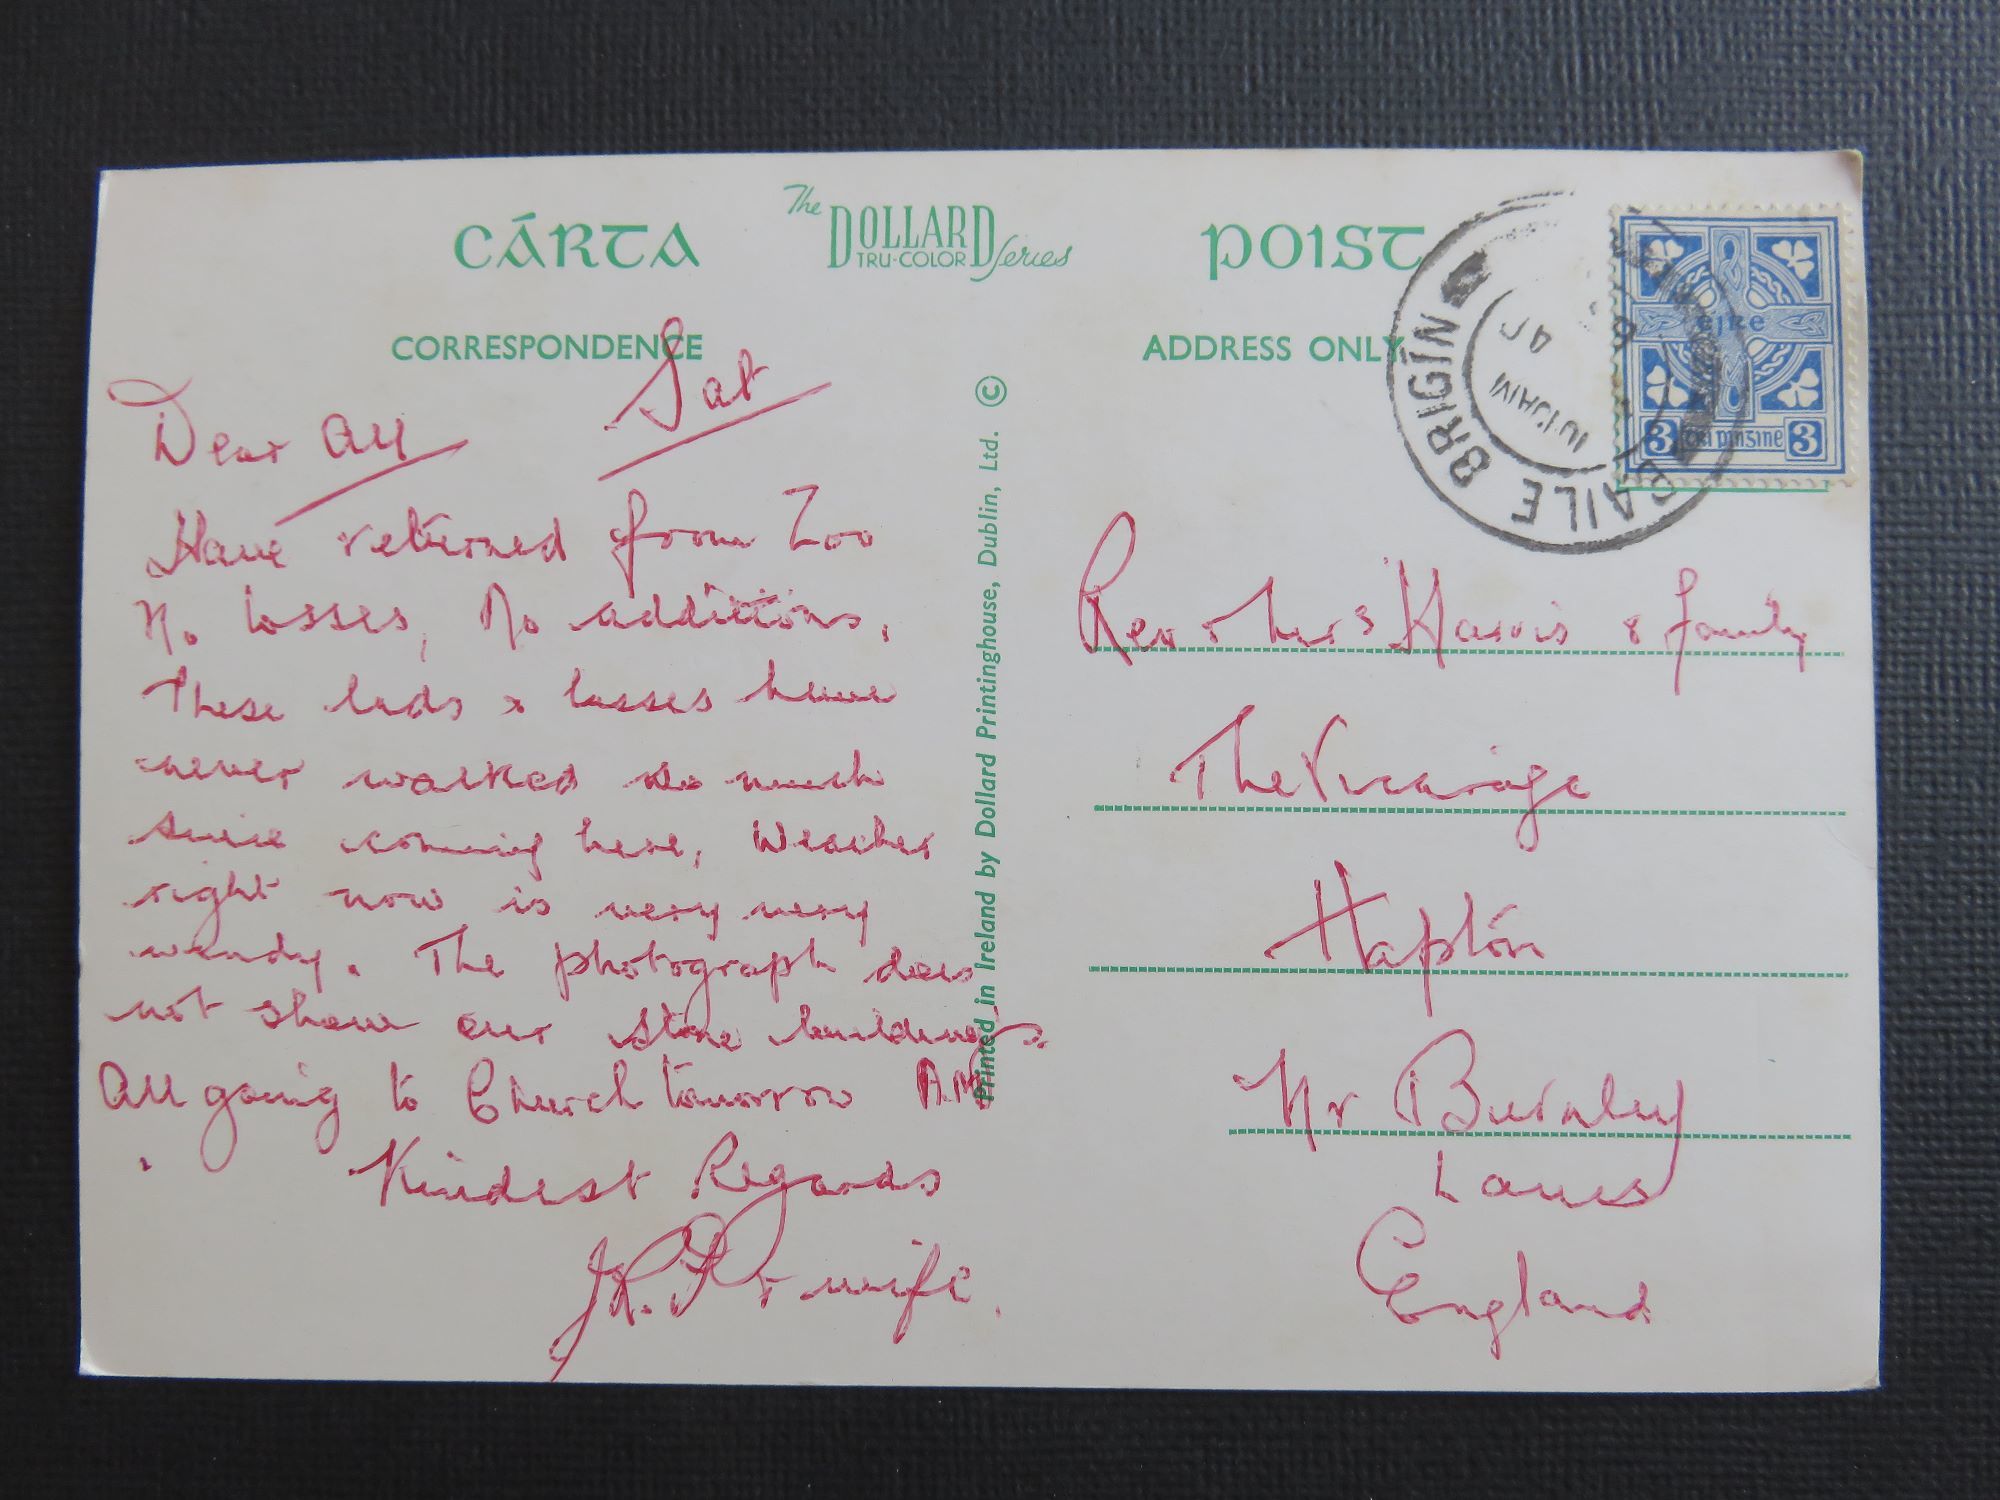 CÁRTA
The DOLLARD TRU-COLOR Series
POIST
CORRESPONDENCE
ADDRESS ONLY
Sat
Dear All
Have returned from Zoo
No losses, No additions,
These lads & lasses have
never walked so much
since coming here, Weather
right now is very very
windy. The photograph does
not show our stone buildings.
All going to Church tomorrow A.M.
Kindest Regards
& wife.
Printed in Ireland by Dollard Printinghouse, Dublin, Ltd. ©
BAILE BRIGÍN
éire
3 trí pinzine 3
Rev & Mrs Harris & family
The Vicarage
Hapton
Nr Burnley
Lancs
England